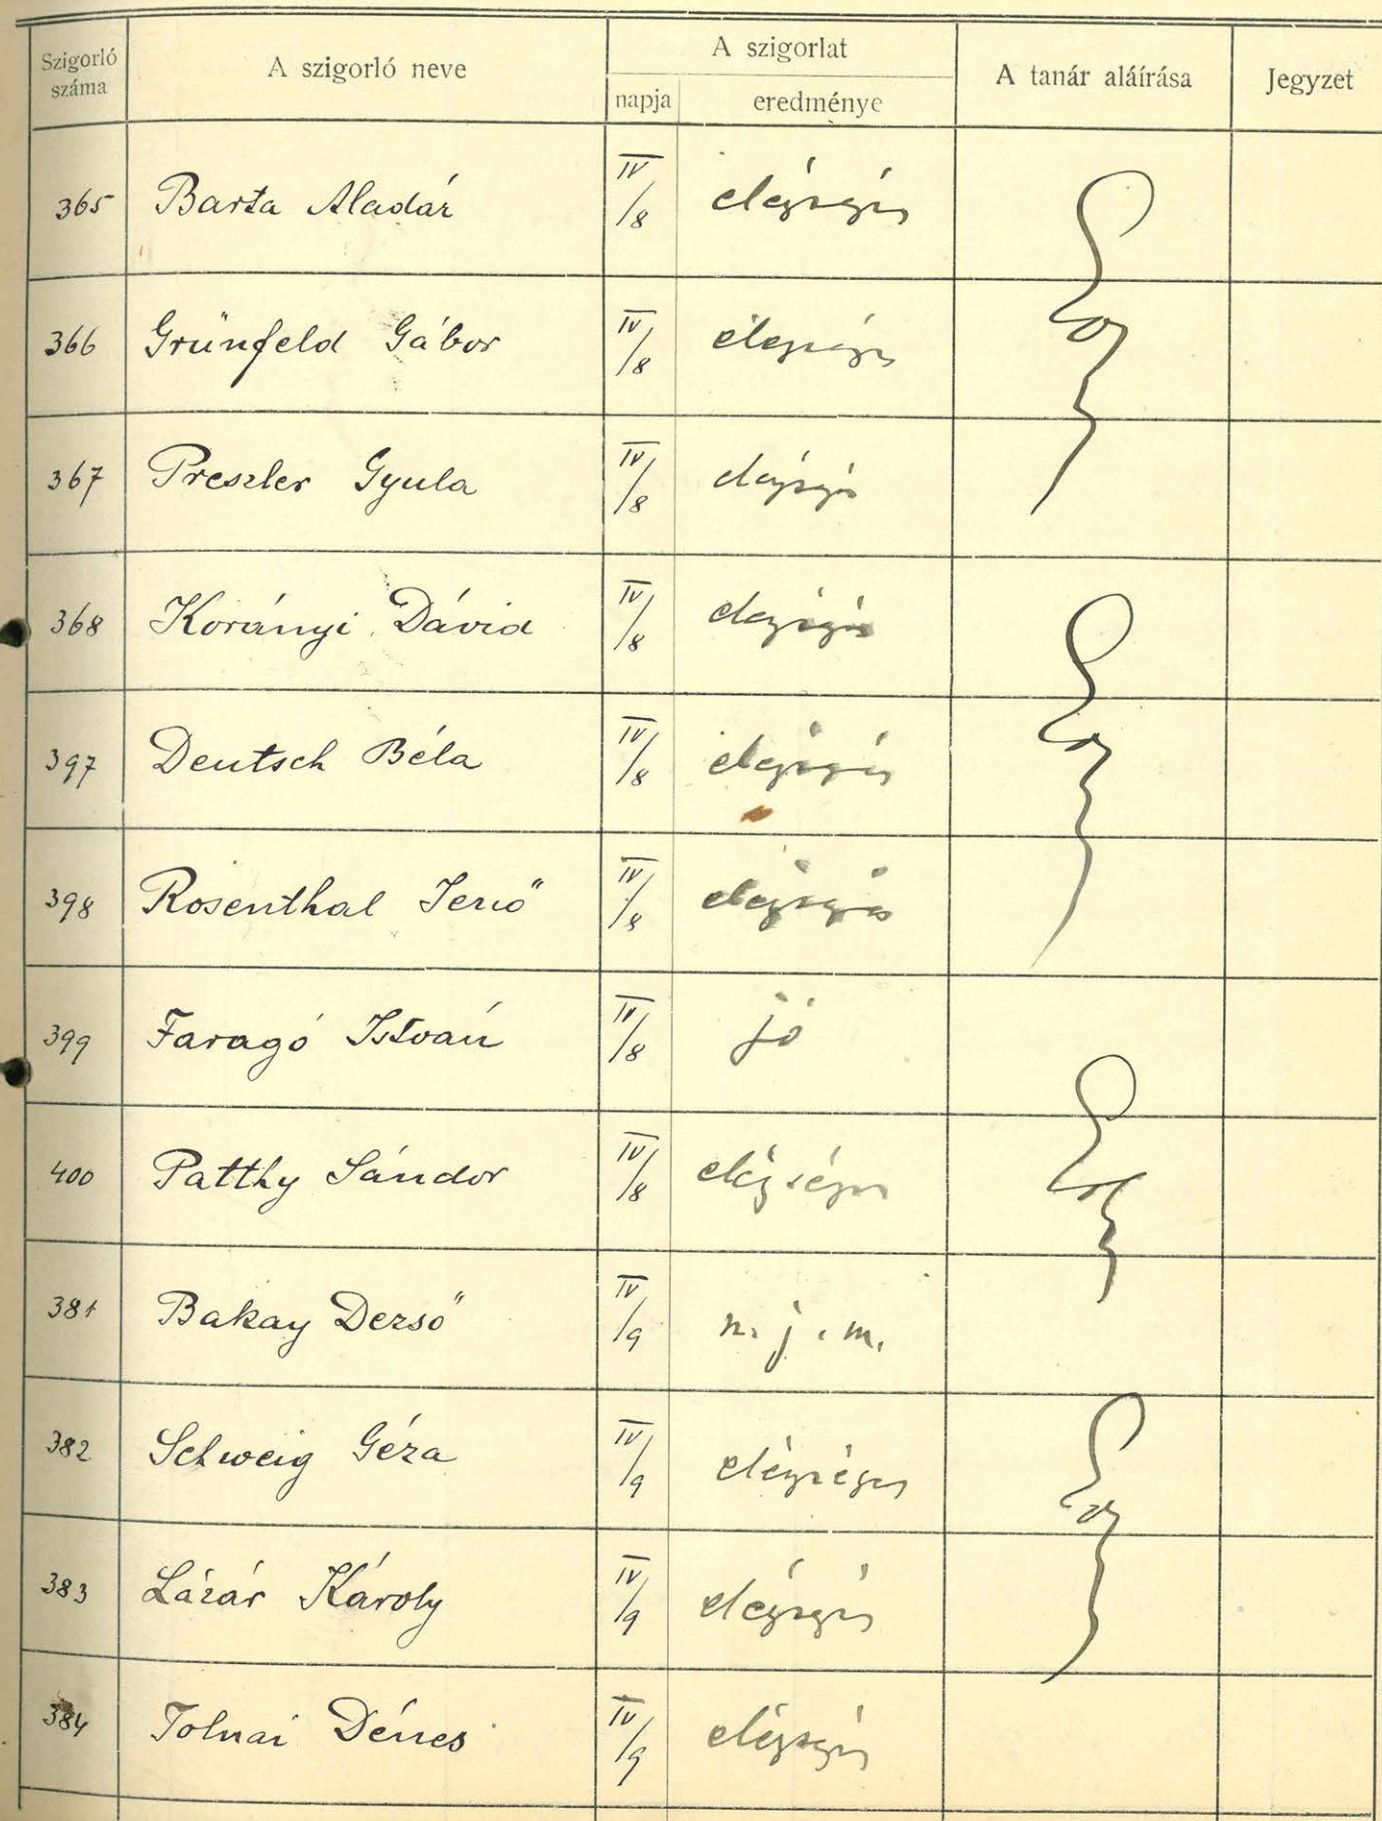 Szigorló száma | A szigorló neve | A szigorlat napja | A szigorlat eredménye | A tanár aláírása | Jegyzet
365 Barta Aladár IV/8 elégséges
366 Grünfeld Gábor IV/8 elégséges
367 Preszler Gyula IV/8 elégséges
368 Korányi Dávid IV/8 elégséges
397 Deutsch Béla IV/8 elégséges
398 Rosenthal Jenő IV/8 elégséges
399 Faragó István IV/8 jó
400 Patthy Sándor IV/8 elégséges
381 Bakay Dezső IV/9 n. j. m.
382 Schweig Géza IV/9 elégséges
383 Lázár Károly IV/9 elégséges
384 Tolnai Dénes IV/9 elégséges